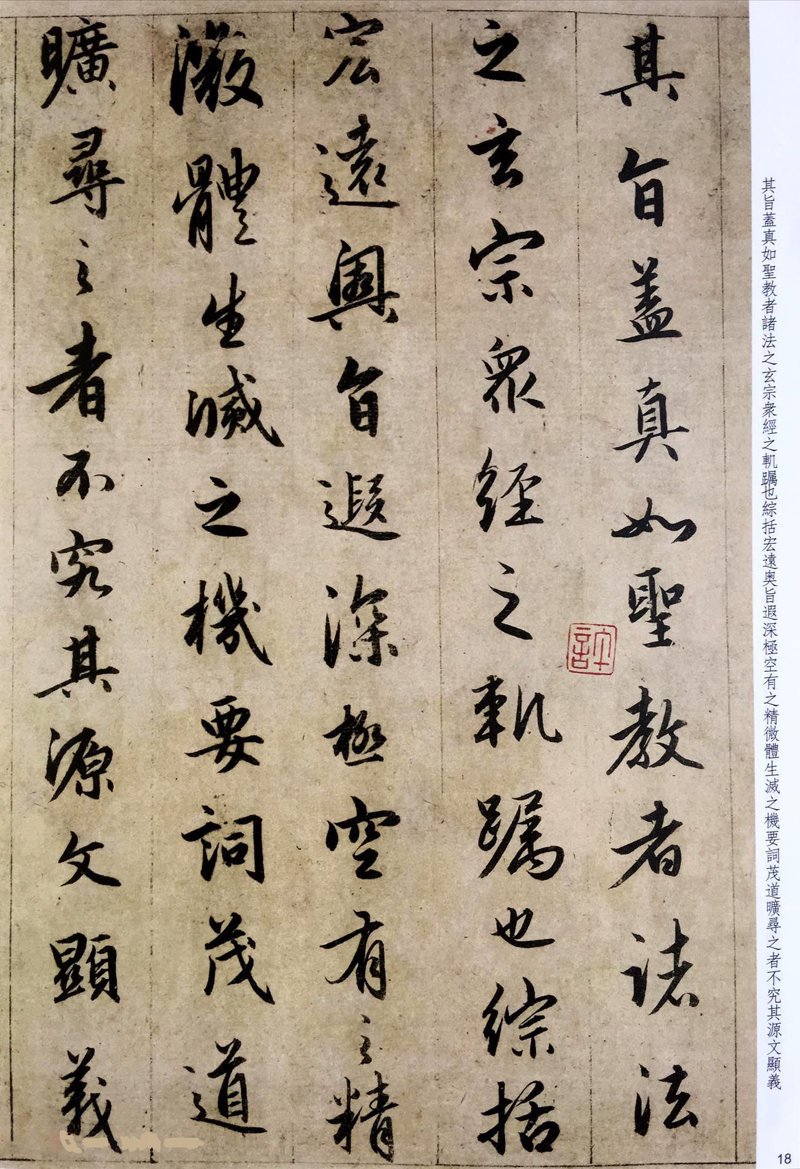 其旨蓋真如聖教者諸法
之玄宗衆經之軌躅也綜括
宏遠奧旨遐深極空有之精
微體生滅之機要詞茂道
曠尋之者不究其源文顯義
其旨蓋真如聖教者諸法之玄宗衆經之軌躅也綜括宏遠奧旨遐深極空有之精微體生滅之機要詞茂道曠尋之者不究其源文顯義
18